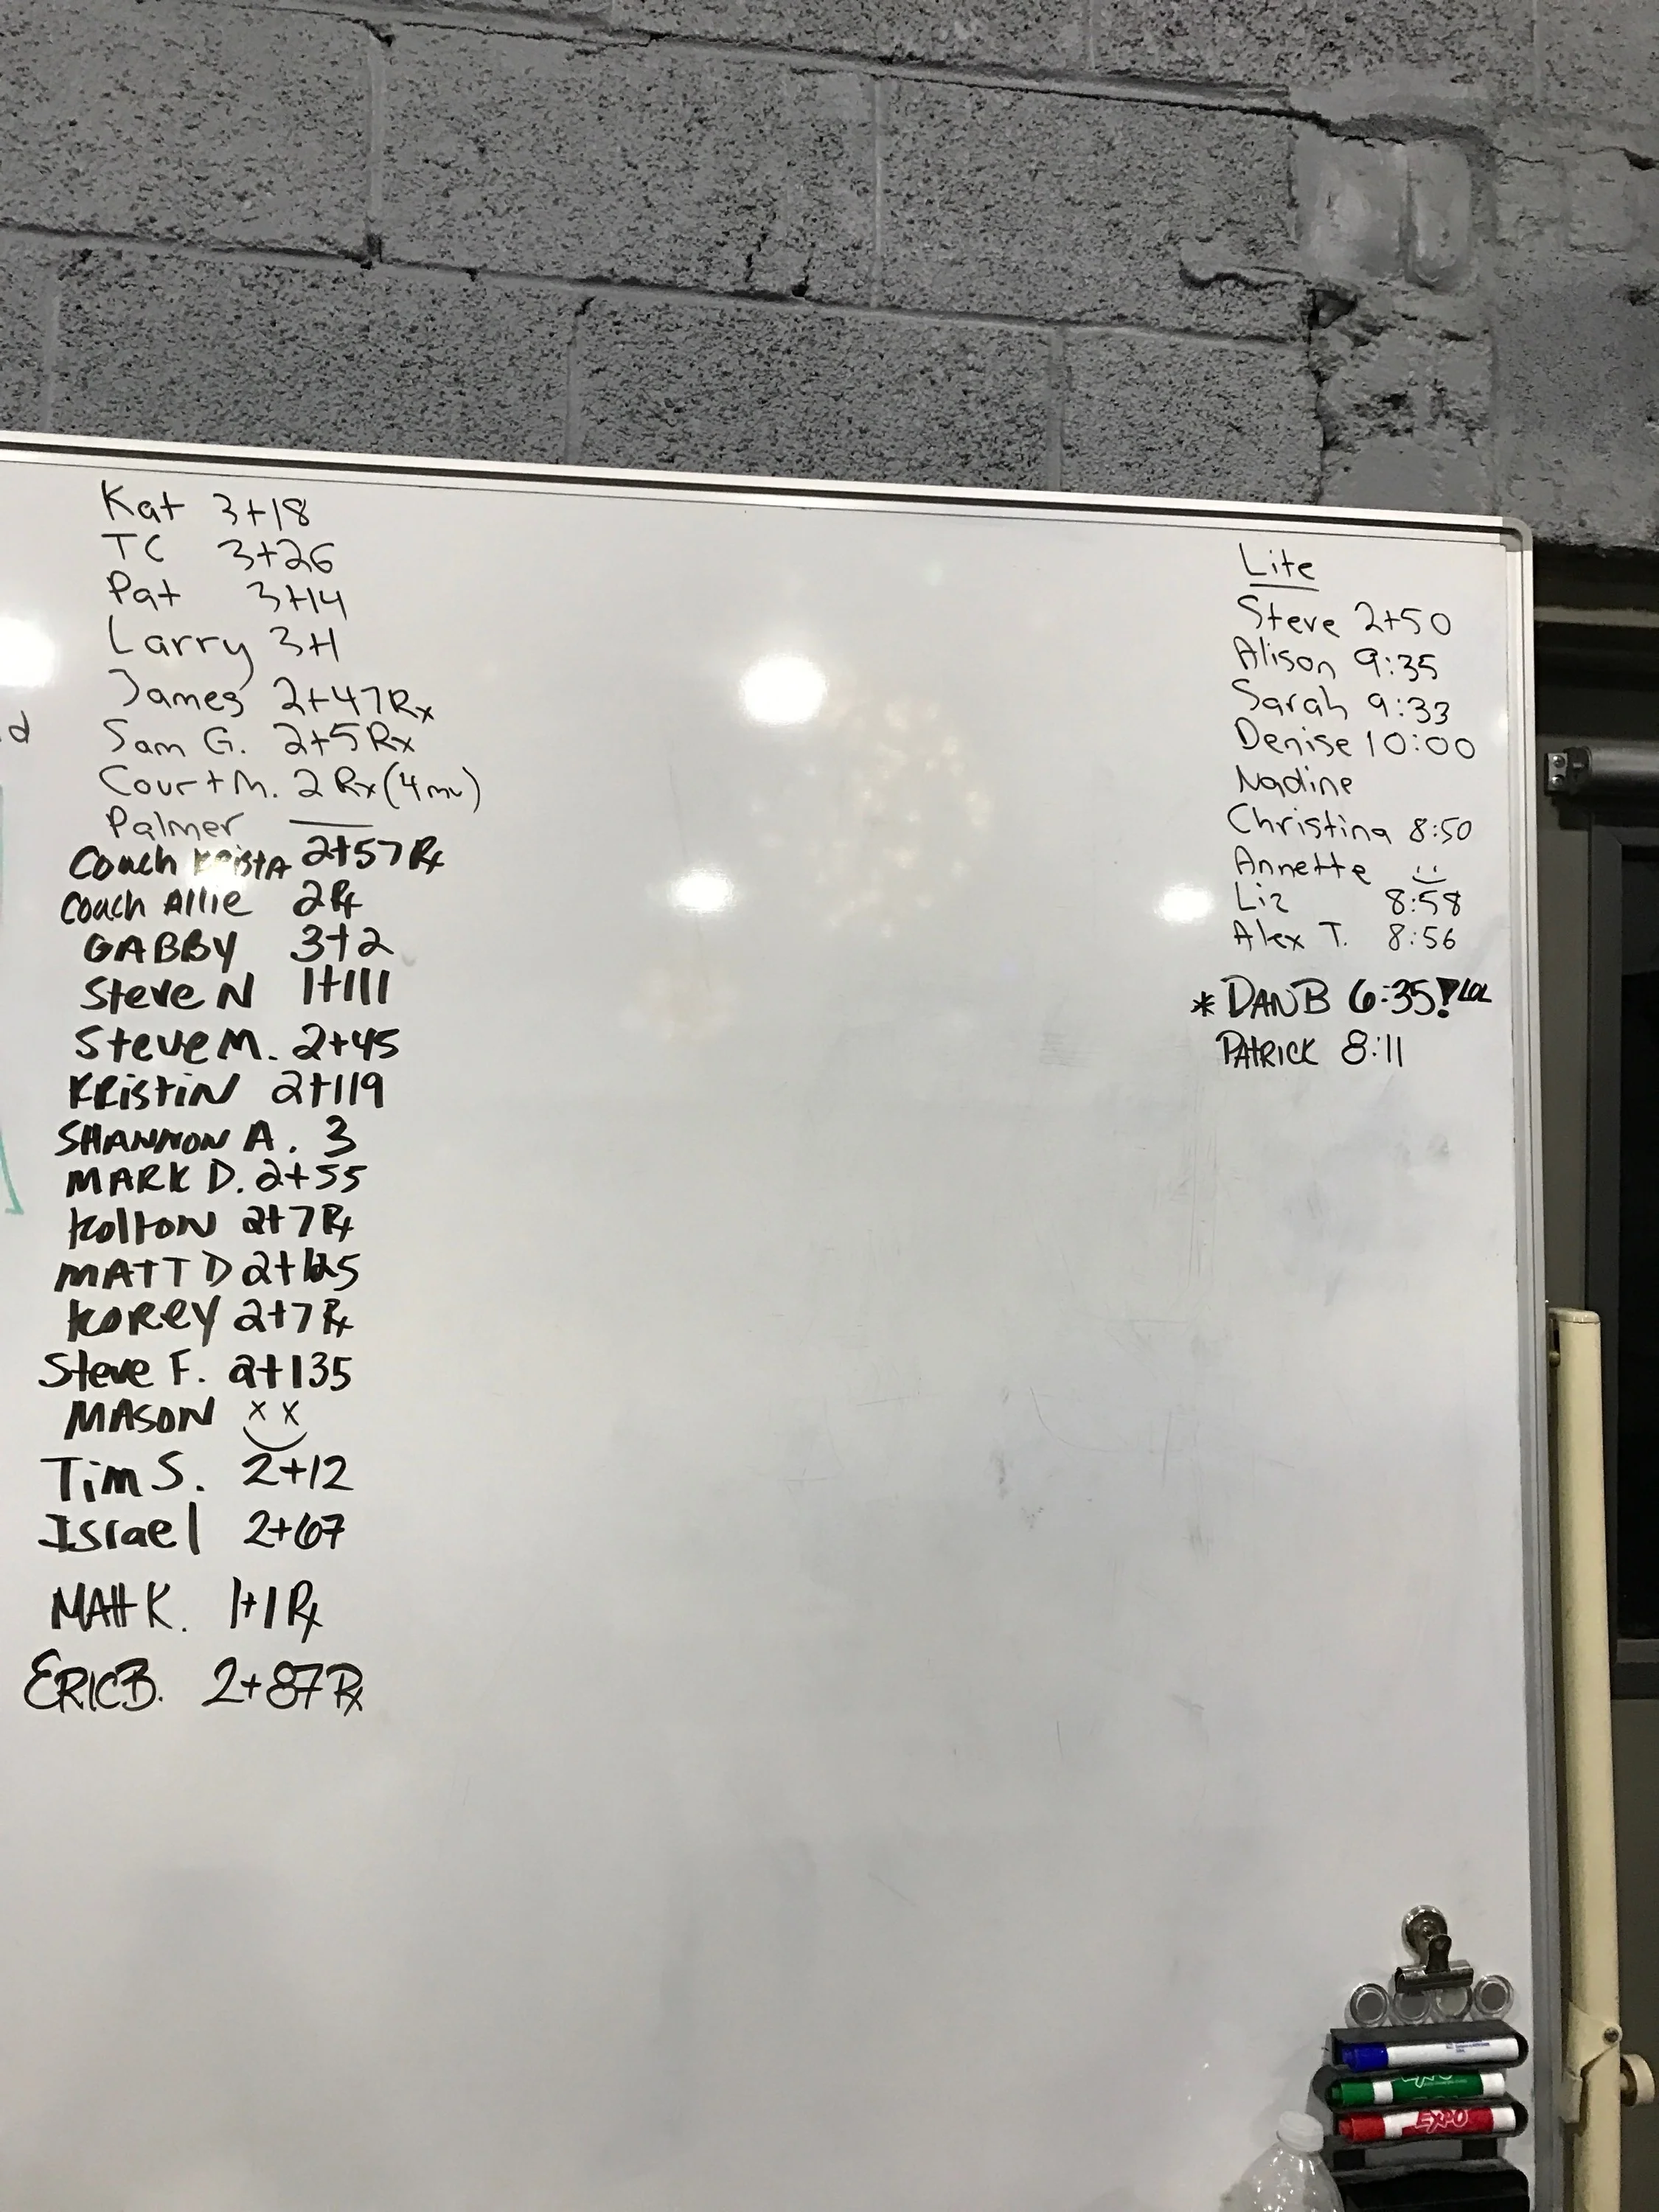 Kat 3+18
TC 3+26
Pat 3+14
Larry 3+1
James 2+47 Rx
Sam G. 2+5 Rx
Court M. 2 Rx (4mu)
Palmer
Coach Krista 2+57 Rx
Coach Allie 2 Rx
GABBY 3+2
Steve N 1+111
Steve M. 2+45
KRistiN 2+119
SHANNON A. 3
MARK D. 2+55
Kolton 2+7 Rx
MATT D 2+125
KOREY 2+7 Rx
Steve F. 2+135
MASON
Tim S. 2+12
Israel 2+67
MAtt K. 1+1 Rx
ERIC B. 2+87 Rx
d
Lite
Steve 2+50
Alison 9:35
Sarah 9:33
Denise 10:00
Nadine
Christina 8:50
Annette
Liz 8:58
Alex T. 8:56
* DAN B 6:35! LOL
PATRICK 8:11
EXPO